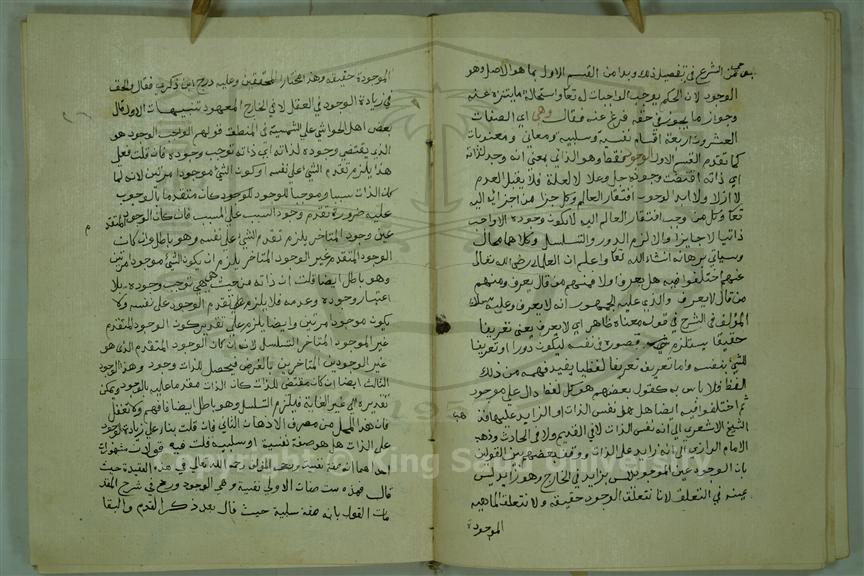 ثم الشرع في تفصيل ذلك وبدا من القسم الاول بما هو الاصل وهو
الوجود لان الحكم بوجوب الواجبات له تعا واستحالة ما يتنزه عنه
وجواز ما يجوز في حقه فرع عنه فقال وهي اي الصفات
العشرون اربعة اقسام نفسية وسلبية ومعاني ومعنويات
كما تقدم القسم الاول الوجود فقط وهو الذاتي بمعنى انه وجد لذاته
اي ذاته اقتضت وجوده جل وعلا لا لعلة فلا يقبل العدم
لا ازلا ولا ابدا لوجوب افتقار العالم وكل جزء من اجزائه اليه
تعا وكل من وجب افتقار العالم اليه لا يكون وجوده الا واجب
ذاتيا لا جايزا والا لزم الدور والتسلسل وكلاهما محال
وسياتي برهانه انشاء الله تعا واعلم ان العلماء رضي الله تعالى
عنهم اختلفوا فيه هل يعرف ولا فمنهم من قال يعرف ومنهم
من قال لا يعرف والذي عليه الجمهور انه لا يعرف وعليه سلك
المؤلف في الشرح في قوله معناه ظاهر اي لا يعرف يعني تعريفا
حقيقا يستلزم تصوره في نفسه ليكون دورا او تعريفا
للشئ بنفسه واما تعريفه تعريفا لفظيا يفيد فهمه من ذلك
اللفظ فلا باس به كقول بعضهم هو كل لفظ دال على موجود
ثم اختلفوا فيه ايضا هل هو نفس الذات او الزايد عليها فذهب
الشيخ الاشعري الى انه نفس الذات لا في القديم ولا في الحادث وذهب
الامام الرازي الى انه زايد على الذات ووفق بعضهم بين القولين
بان الوجود عين الموجود ليس بزايد في الخارج وهو زايد ليس
عينه في التعقل لانا نتعقل الوجود حقيقة ولا نتعقل الماهية
الموجودة
الموجودة حقيقة وهذا مختار المحققين وعليه درج ابن ذكري فقال والحق
في زيادة الوجود في العقل لا في الخارج المعهود تنبيهات الاول قال
بعض اهل الحواشي على الشمسية في المنطق قولهم الواجب الوجود هو
الذي يقتضي وجوده لذاته اي ذاته توجب وجوده فان قلت فعلى
هذا يلزم تقدم الشئ على نفسه او كون الشئ موجودا مرتين لانه لما
كان الذات سببا وموجبا للوجود للوجود كان متقدما بالوجوب
عليه ضرورة تقدم وجود السبب على المسبب فان كان الوجود المتقدم
عين وجود المتاخر يلزم تقدم الشئ على نفسه وهو باطل وان كان
الوجود المتقدم غير الوجود المتاخر يلزم ان يكون الشئ موجودا مرتين
وهو باطل ايضا قلت ان ذاته من حيث هي هي توجب وجوده بلا
اعتبار وجوده وعدمه فلا يلزم على تقدم الوجود على نفسه ولا
يكون موجود مرتين وايضا يلزم على تقدير كون الوجود المتقدم
غير الموجود المتاخر التسلسل لانه ان كان الوجود المتقدم الذي هو
غير الوجودين المتاخرين بالغرض فيحصل للذات وجود وهذا الوجود
الثالث ايضا ان كان مقتضى للذات كان الذات مقدما عليه بالوجود ويمكن
تقديره الى غير الغاية فيلزم التسلسل وهو باطل ايضا فافهم ولا تغفل
فان هذا المحل من مصرف الاذهان الثاني فان قلت بناء على زيادة الوجود
على الذات هل هو صفة نفسية او سلبية قلت فيه قولان مشهوران
احدهما انه صفة نفسية ورجحه المؤلف رحمه الله تعالى في هذه العقيدة حيث
قال فهذه ست صفات الاولى نفسية وهي الوجود ورجح في شرح المقد
مات القول بانه صفة سلبية حيث قال بعد ذكر القدم والبقا
Copyright © King Saud University
1957